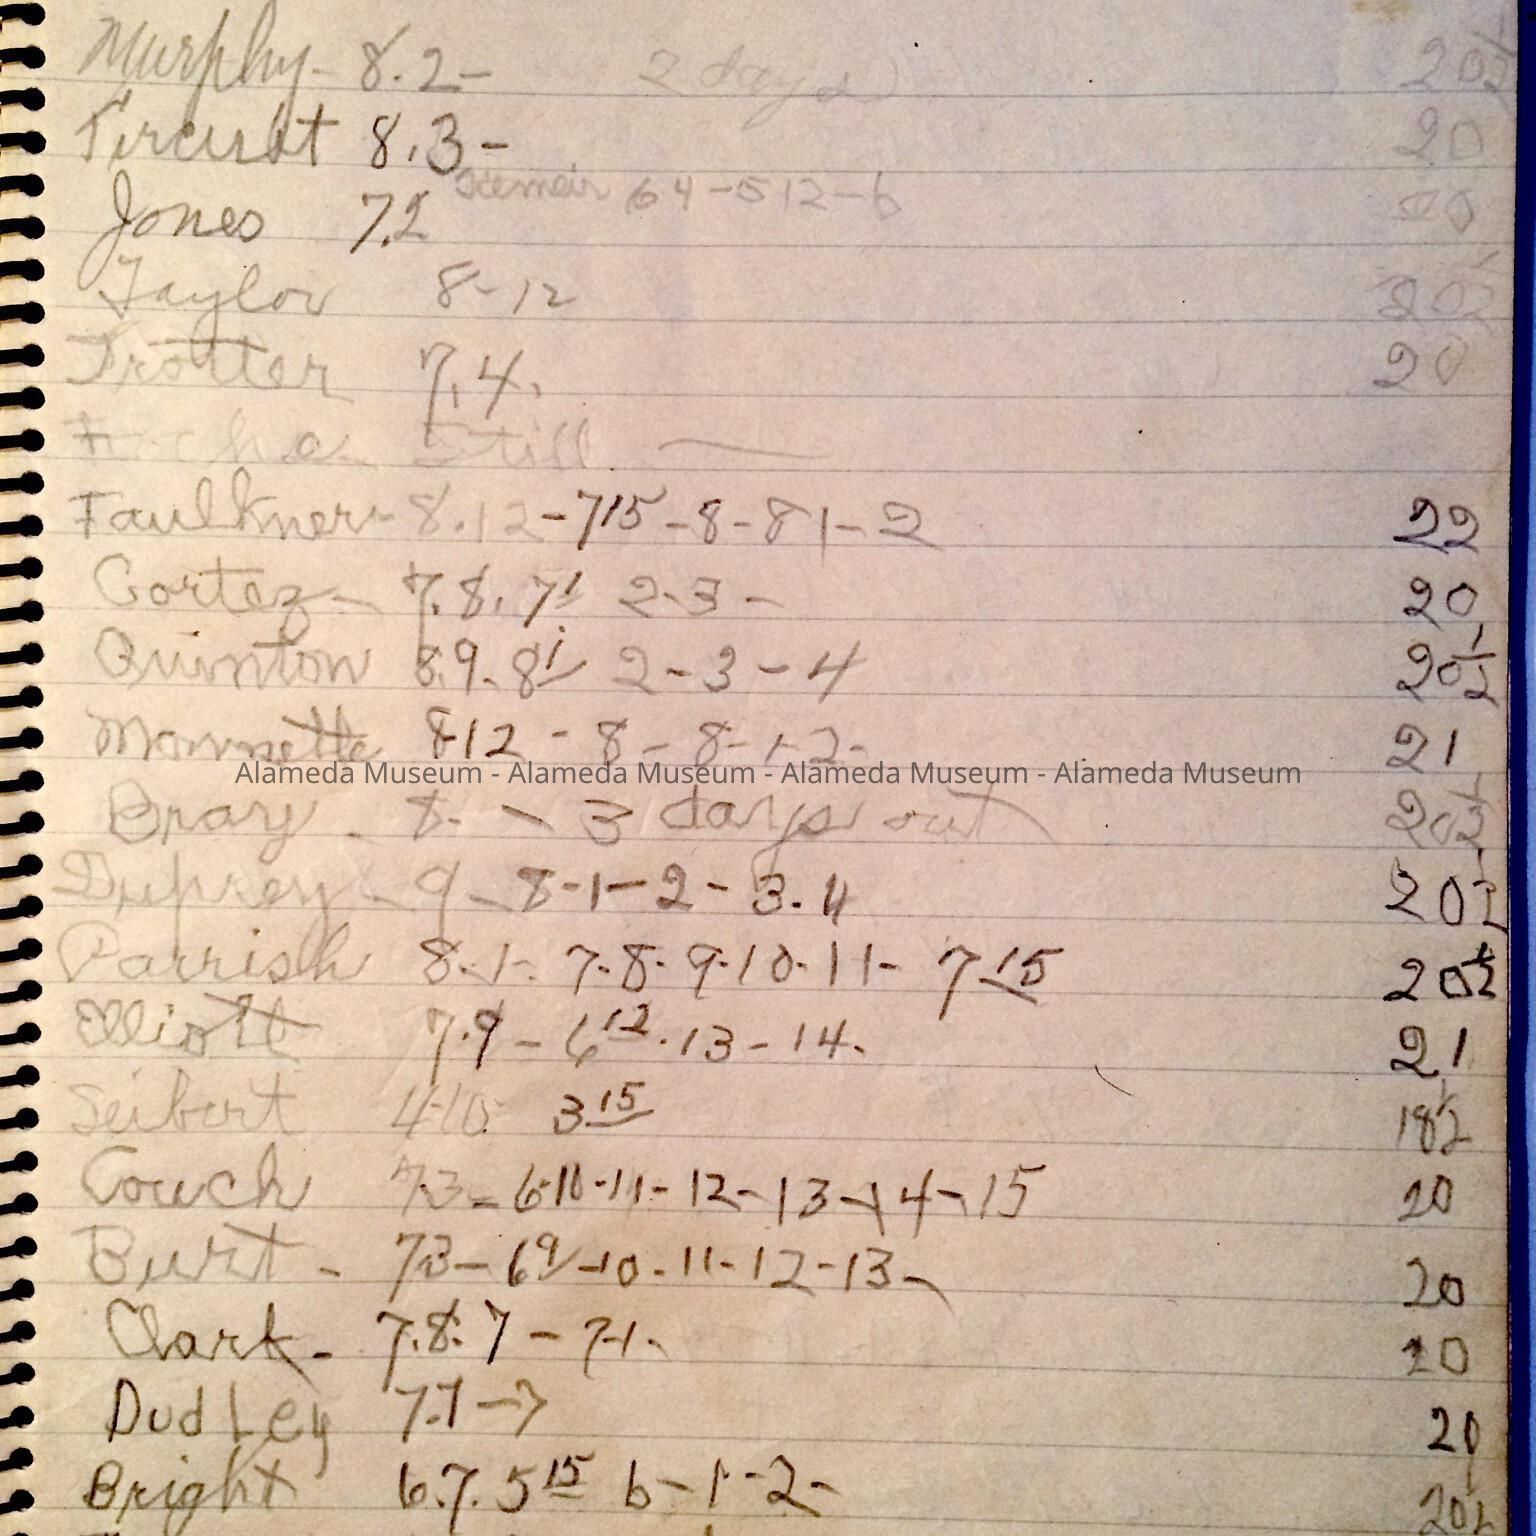 Murphy - 8.2 - 2 days 20 1/2
8.3 - 20
64-512-6
Jones 7.2 20
Taylor 8-12 20 1/2
Trotter 7.4. 20
Still
Faulkner - 8.12 - 715 - 8 - 81 - 2 22
Cortez - 7.8. 7 1 2-3 - 20
Quinton 8.9. 8 1 2-3-4 20 1/2
Monnette 812 - 8 - 8-1-2- 21
Alameda Museum - Alameda Museum - Alameda Museum - Alameda Museum
Bray - 8. - 3 days out 20 1/2
Duprey - 9 - 8-1-2-3.4 20 1/2
Parrish 8.1. 7.8.9.10.11- 7 15 20 1/2
Elliott 7.9 - 6 12.13-14. 21
Seibert 4-10 3 15 18 1/2
Couch 7.3 - 6-10-11-12-13-14-15 20
Burt - 73 - 6 9 -10-11-12-13- 20
Clark - 7.8.7 - 7-1. 20
Dudley 7.7 - 7
Bright 6.7. 5 15 6-1-2-